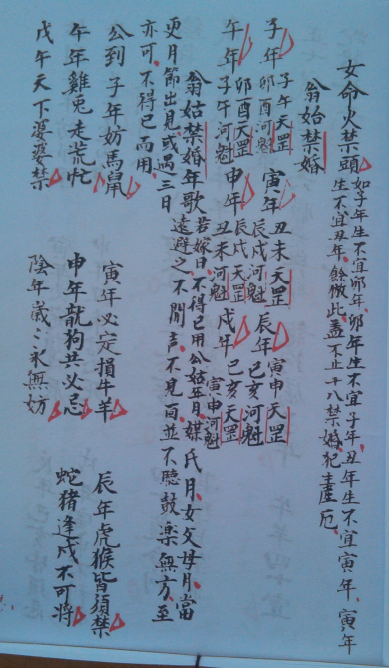 女命火禁頭如子年生不宜卯年卯年生不宜子年丑年生不宜寅年寅年
生不宜丑年餘倣此蓋不止十八禁婚犯主產厄
翁始禁婚
子年子午天罡卯酉河魁寅年丑未天罡辰戌河魁辰年寅申天罡巳亥河魁
午年卯酉天罡子午河魁申年辰戌天罡丑未河魁戌年巳亥天罡寅申河魁
翁姑禁婚年歌
若嫁日不得已用公姑年月媒氏月女父母月當
更月節出見或過三日遠避之不聞声不見面並不聽鼓樂無方至
亦可不得已而用
公到子年妨馬鼠 寅年必定損牛羊 辰年虎猴皆須禁
午年雞兎走荒忙 申年龍狗共必忌 蛇猪逢戌不可將
戊午天下婆婆禁 陰年歲〻永無妨